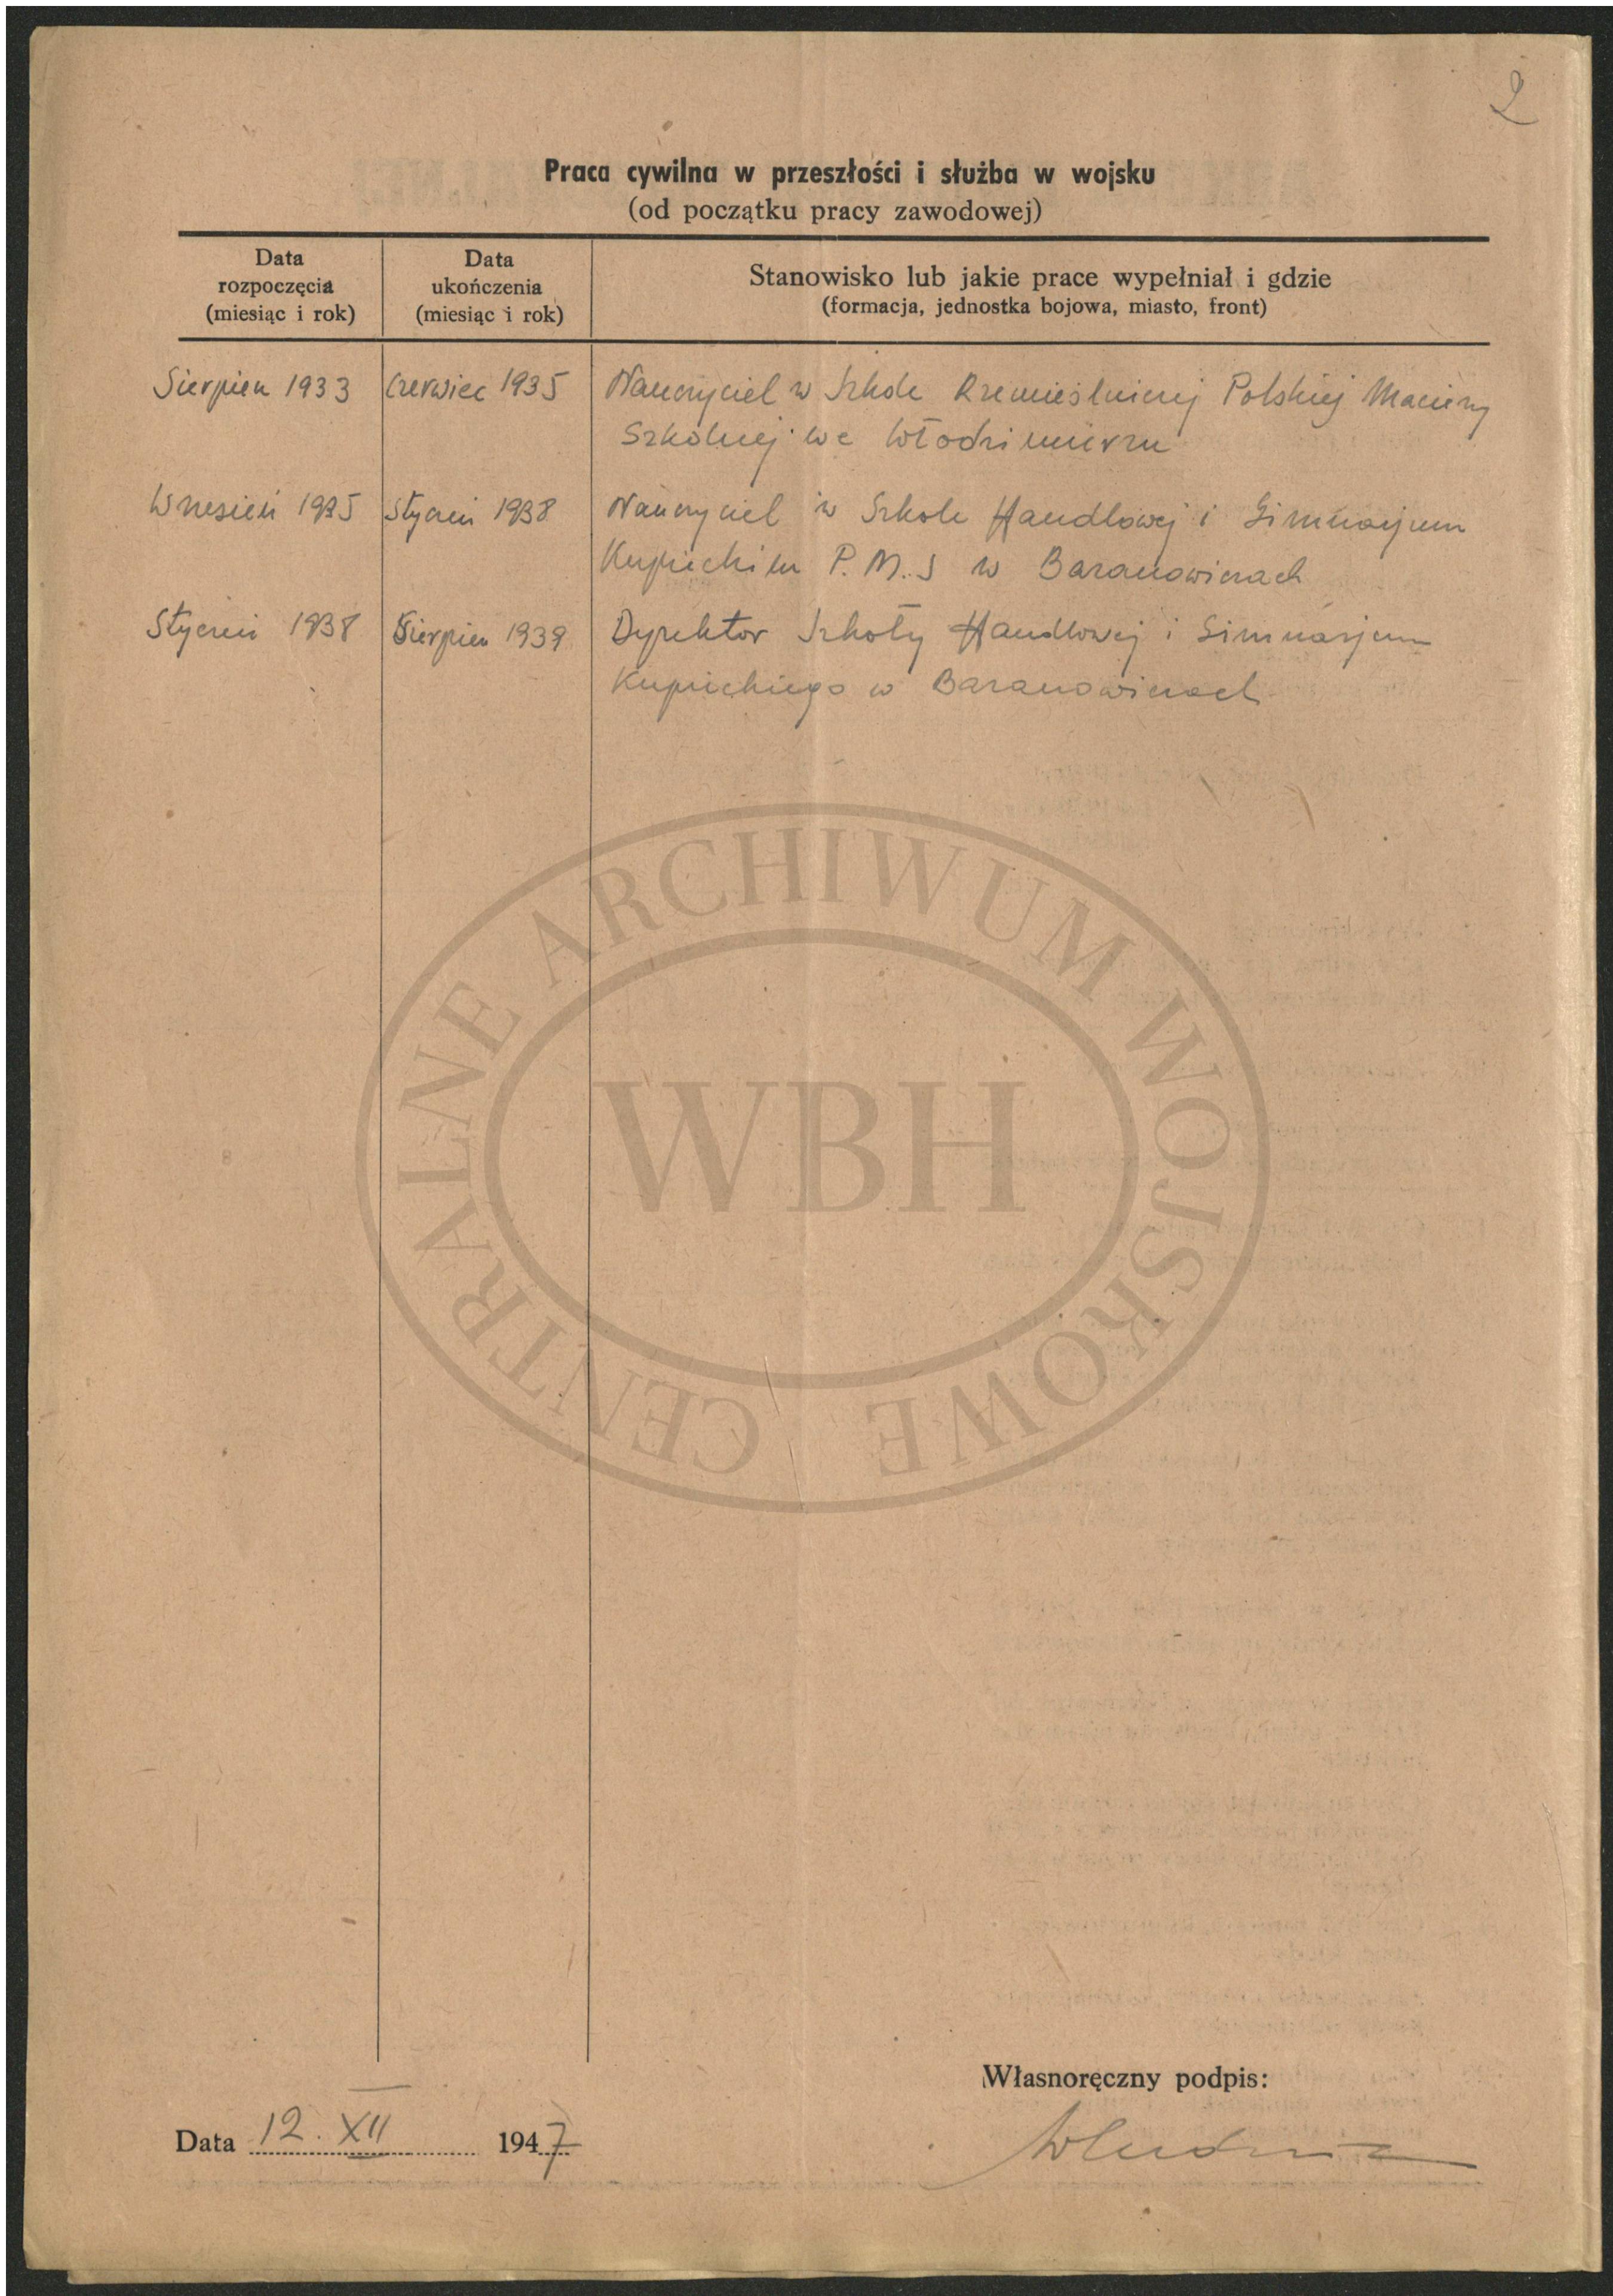 2
Praca cywilna w przeszłości i służba w wojsku
(od początku pracy zawodowej)
Data rozpoczęcia (miesiąc i rok)
Data ukończenia (miesiąc i rok)
Stanowisko lub jakie prace wypełniał i gdzie
(formacja, jednostka bojowa, miasto, front)
Sierpień 1933 Czerwiec 1935 Nauczyciel w Szkole Rzemieślniczej Polskiej Macierzy
Szkolnej we Włodzimierzu
Wrzesień 1935 Styczeń 1938 Nauczyciel w Szkole Handlowej i Gimnazjum
Kupieckim P.M.S w Baranowiczach
Styczeń 1938 Sierpień 1939 Dyrektor Szkoły Handlowej i Gimnazjum
Kupieckiego w Baranowiczach
CENTRALNE ARCHIWUM WOJSKOWE
WBH
Własnoręczny podpis:
Data 12. XII 1947